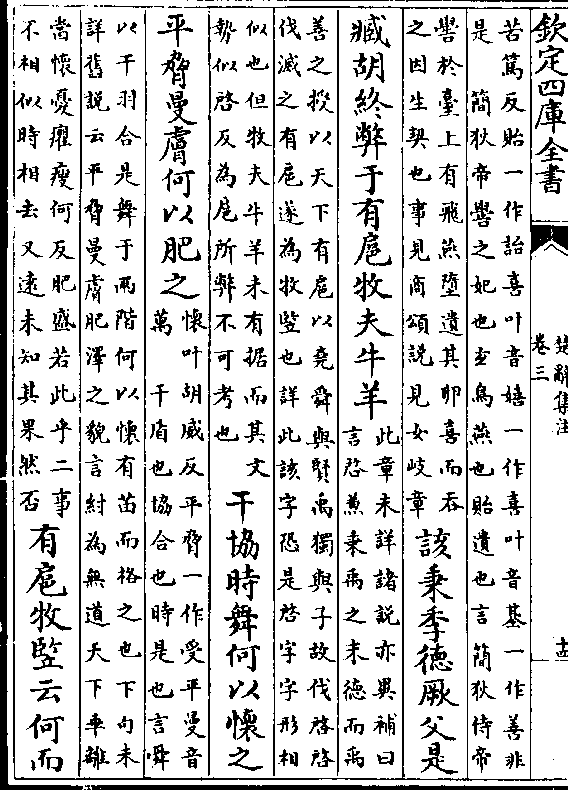 欽定四庫全書
楚辭集注
卷三
十三
苦篤反貽一作詒喜叶音嬉一作喜叶音基一作善非
是 簡狄帝嚳之妃也玄鳥燕也貽遺也言簡狄侍帝
嚳於臺上有飛燕墮遺其卵喜而吞
之因生契也事見商頌說見女岐章
該秉季德厥父是
臧胡終弊于有扈牧夫牛羊
此章未詳諸說亦異補曰
言啓兼秉禹之末德而禹
善之授以天下有扈以堯舜與賢禹獨與子故伐啓啓
伐滅之有扈遂為牧竪也詳此該字恐是啓字字形相
似也但牧夫牛羊未有据而其文
勢似啓反為扈所弊不可考也
干協時舞何以懷之
平脅曼膚何以肥之
懷叶胡威反平脅一作受平曼音
萬 干盾也協合也時是也言舜
以干羽合是舞于兩階何以懷有苗而格之也下句未
詳舊說云平脅曼膚肥澤之貌言紂為無道天下乖離
當懷憂癯瘦何反肥盛若此乎二事
不相似時相去又遠未知其果然否
有扈牧竪云何而